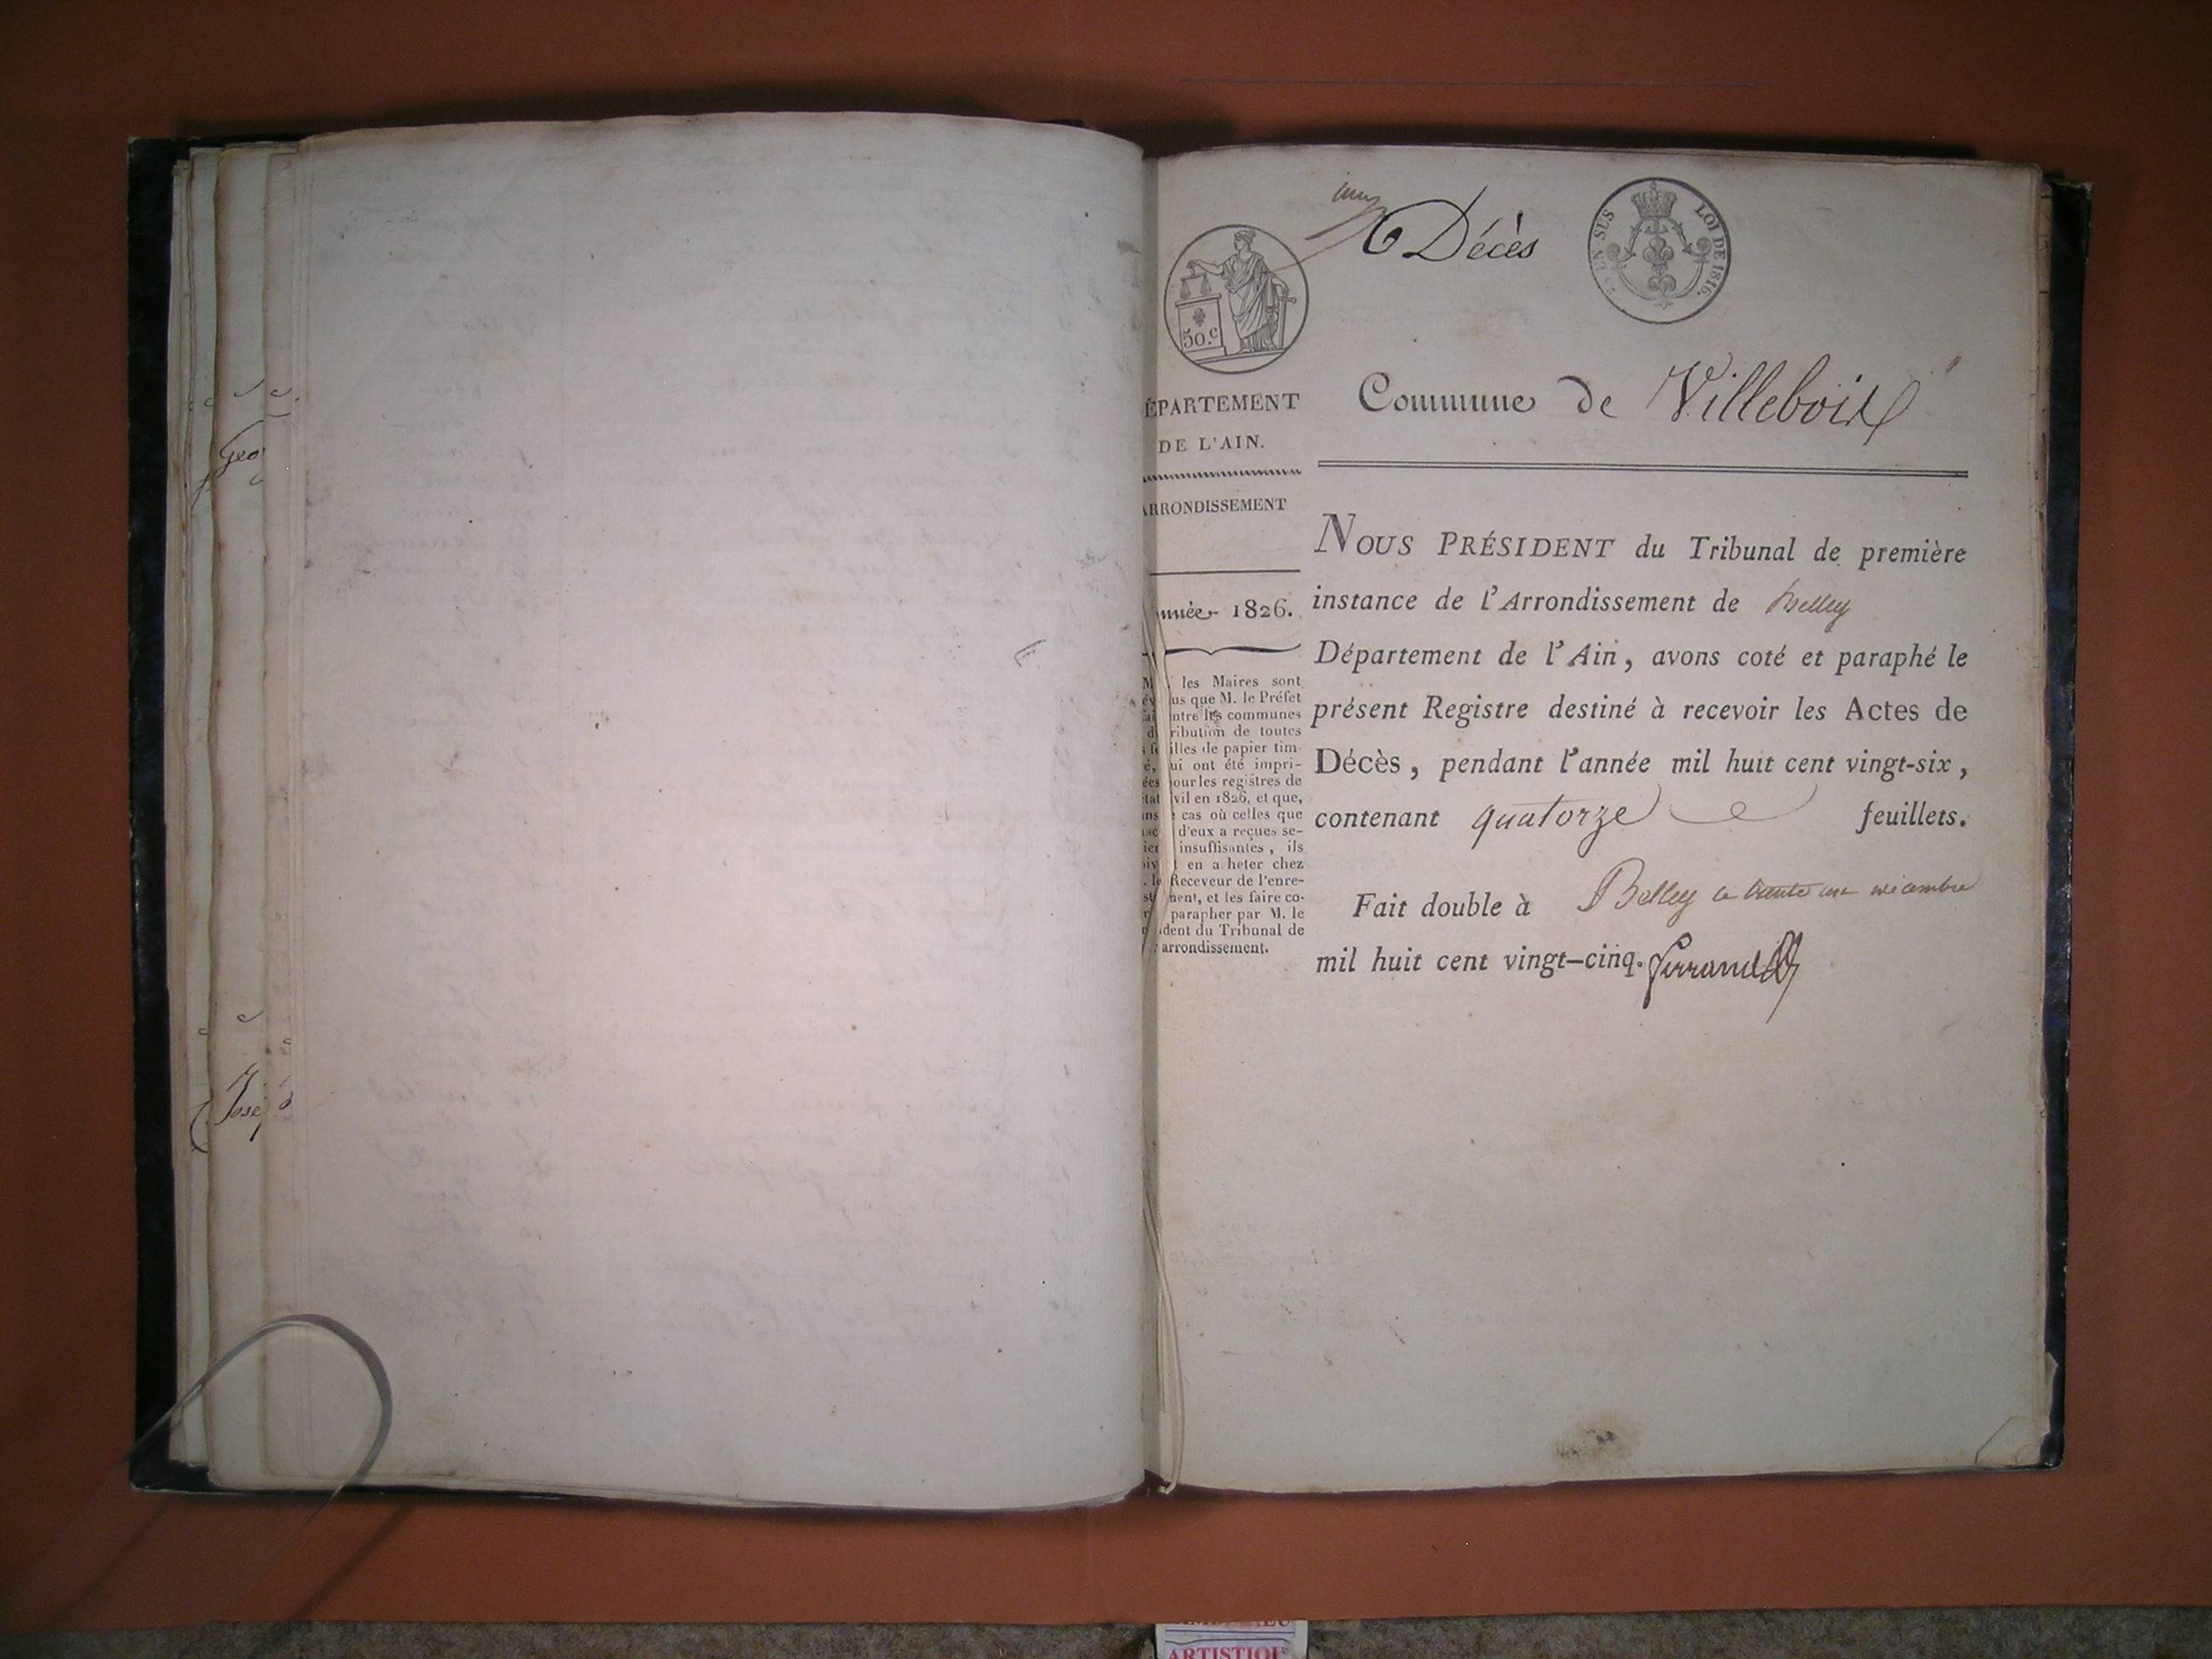 Geo
José
un
6 Décès
EN SUS
LOI DE 1816.
50.c
Commune de Villebois
ÉPARTEMENT
DE L'AIN.
ARRONDISSEMENT
nnée 1826.
les Maires sont
us que M. le Préfet
ntre les communes
ribution de toutes
illes de papier tim-
ui ont été impri-
pour les registres de
vil en 1826, et que,
cas où celles que
d'eux a reçues se-
insuffisantes, ils
en a heter chez
Receveur de l'enre-
ment, et les faire co-
parapher par M. le
dent du Tribunal de
arrondissement.
NOUS PRÉSIDENT du Tribunal de première
instance de l'Arrondissement de Belley
Département de l'Ain, avons coté et paraphé le
présent Registre destiné à recevoir les Actes de
Décès, pendant l'année mil huit cent vingt-six,
contenant quatorze feuillets.
Fait double à Belley ce trente un décembre
mil huit cent vingt-cinq. Ferrand
ARTISTIQU